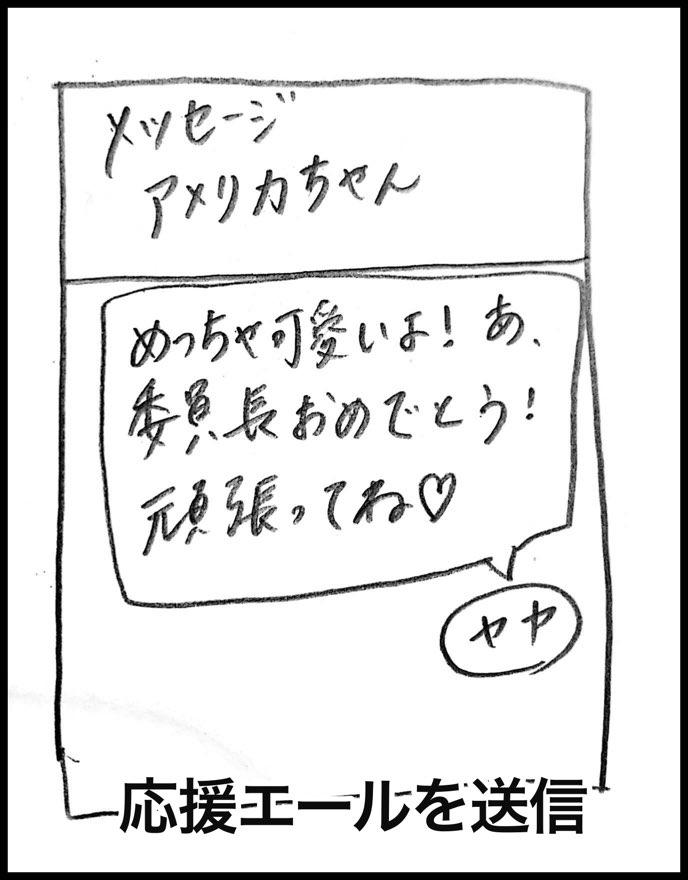 メッセージ
アメリカちゃん
めっちゃ可愛いよ！あ、
委員長おめでとう！
頑張ってね♡
ヤヤ
応援エールを送信